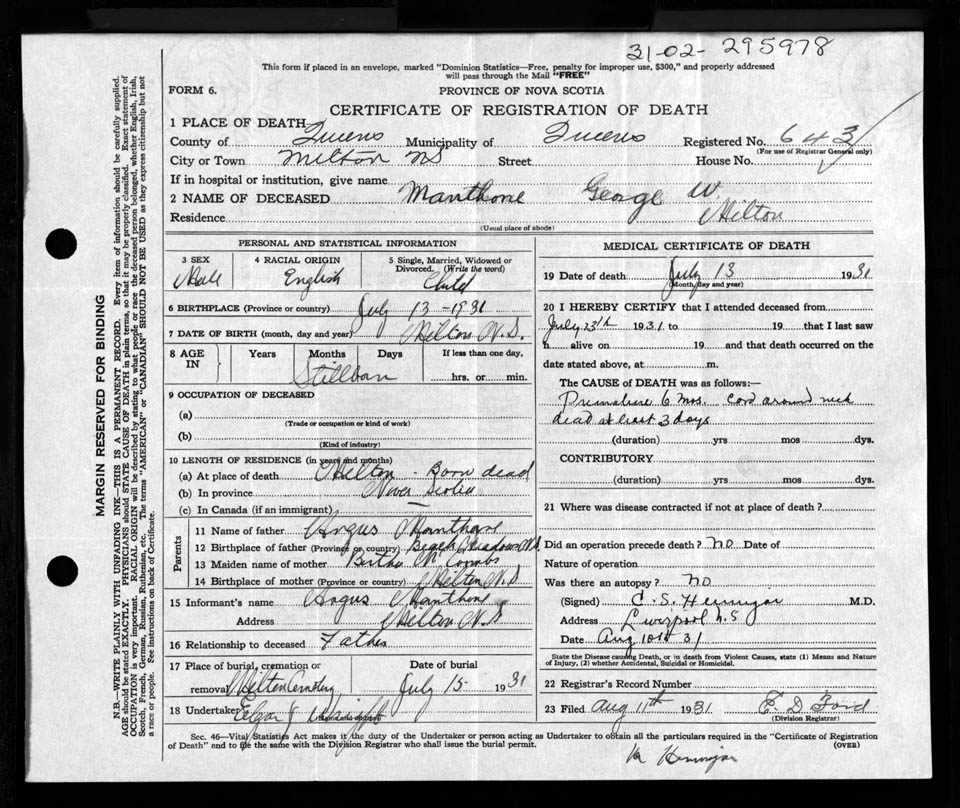 31-02-295978
This form if placed in an envelope, marked "Dominion Statistics—Free, penalty for improper use, $300," and properly addressed
will pass through the Mail "FREE"
FORM 6.
PROVINCE OF NOVA SCOTIA
CERTIFICATE OF REGISTRATION OF DEATH
1 PLACE OF DEATH
County of Queens Municipality of Queens Registered No. 643
(For use of Registrar General only)
City or Town Milton NS Street House No.
If in hospital or institution, give name
2 NAME OF DECEASED Manthone George W.
Residence Milton
(Usual place of abode)
PERSONAL AND STATISTICAL INFORMATION
3 SEX 4 RACIAL ORIGIN 5 Single, Married, Widowed or
Divorced. (Write the word)
Male English Child
6 BIRTHPLACE (Province or country) July 13 - 1931
7 DATE OF BIRTH (month, day and year) Milton N.S.
8 AGE IN Years Months Days If less than one day,
Stillborn hrs. or min.
9 OCCUPATION OF DECEASED
(a)
(Trade or occupation or kind of work)
(b)
(Kind of industry)
10 LENGTH OF RESIDENCE (in years and months)
(a) At place of death Milton - Born dead
(b) In province Nova Scotia
(c) In Canada (if an immigrant)
Parents
11 Name of father Angus Manthone
12 Birthplace of father (Province or country) Beach Meadows N.S.
13 Maiden name of mother Bertha M Combs
14 Birthplace of mother (Province or country) Milton N.S
15 Informant's name Angus Manthone
Address Milton N.S
16 Relationship to deceased Father
17 Place of burial, cremation or Date of burial
removal Milton Cemetery July 15 1931
18 Undertaker
MEDICAL CERTIFICATE OF DEATH
19 Date of death July 13 1931
(Month, day and year)
20 I HEREBY CERTIFY that I attended deceased from
July 23th 1931 to 19 that I last saw
h alive on 19 and that death occurred on the
date stated above, at m.
The CAUSE of DEATH was as follows:—
Premature 6 mos. Cord around neck
dead at least 3 days
(duration) yrs mos dys.
CONTRIBUTORY
(duration) yrs mos dys.
21 Where was disease contracted if not at place of death?
Did an operation precede death? no Date of
Nature of operation
Was there an autopsy? no
(Signed) C. S. Hennigar M.D.
Address Liverpool N.S
Date Aug 10th 31
State the Disease causing Death, or in death from Violent Causes, state (1) Means and Nature
of Injury, (2) whether Accidental, Suicidal or Homicidal.
22 Registrar's Record Number
23 Filed Aug 11th 1931 E D Ford
(Division Registrar)
Sec. 46—Vital Statistics Act makes it the duty of the Undertaker or person acting as Undertaker to obtain all the particulars required in the "Certificate of Registration
of Death" and to file the same with the Division Registrar who shall issue the burial permit. (OVER)
Hennigar
MARGIN RESERVED FOR BINDING
N.B.—WRITE PLAINLY WITH UNFADING INK—THIS IS A PERMANENT RECORD. Every item of information should be carefully supplied.
AGE should be stated EXACTLY. PHYSICIANS should STATE CAUSE OF DEATH in plain terms, so that it may be properly classified. Exact statement of
OCCUPATION is very important. RACIAL ORIGIN will be described by stating to what people or race the deceased person belonged, whether English, Irish,
Scotch, French, German, Russian, Ruthenian, etc. The terms "AMERICAN" or "CANADIAN" SHOULD NOT BE USED as they express citizenship but not
a race or people. See instructions on back of Certificate.